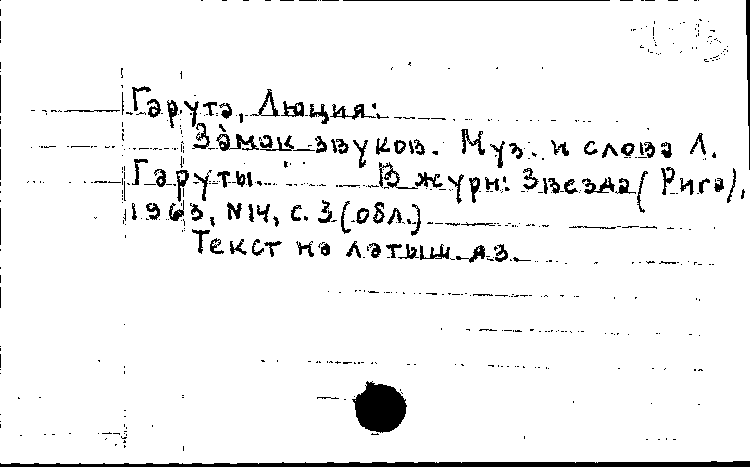 Гарута, Люция:
Замок звуков. Муз. и слова Л.
Гаруты. В журн: Звезда (Рига),
1963, N14, с. 3 (обл.)
Текст на латыш. яз.